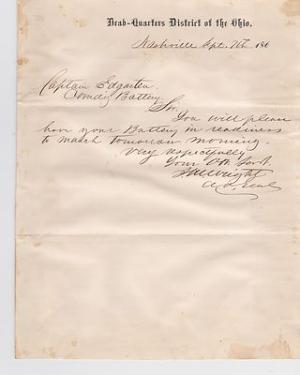 Head-Quarters District of the Ohio,
Nashville Sept. 7th 186
Captain Edgarten
Comdg Battery
Sir
You will please
have your Battery in readiness
to march tomorrow morning.
Very respectfully
Your Obt Servt
Wright
A. A. Genl